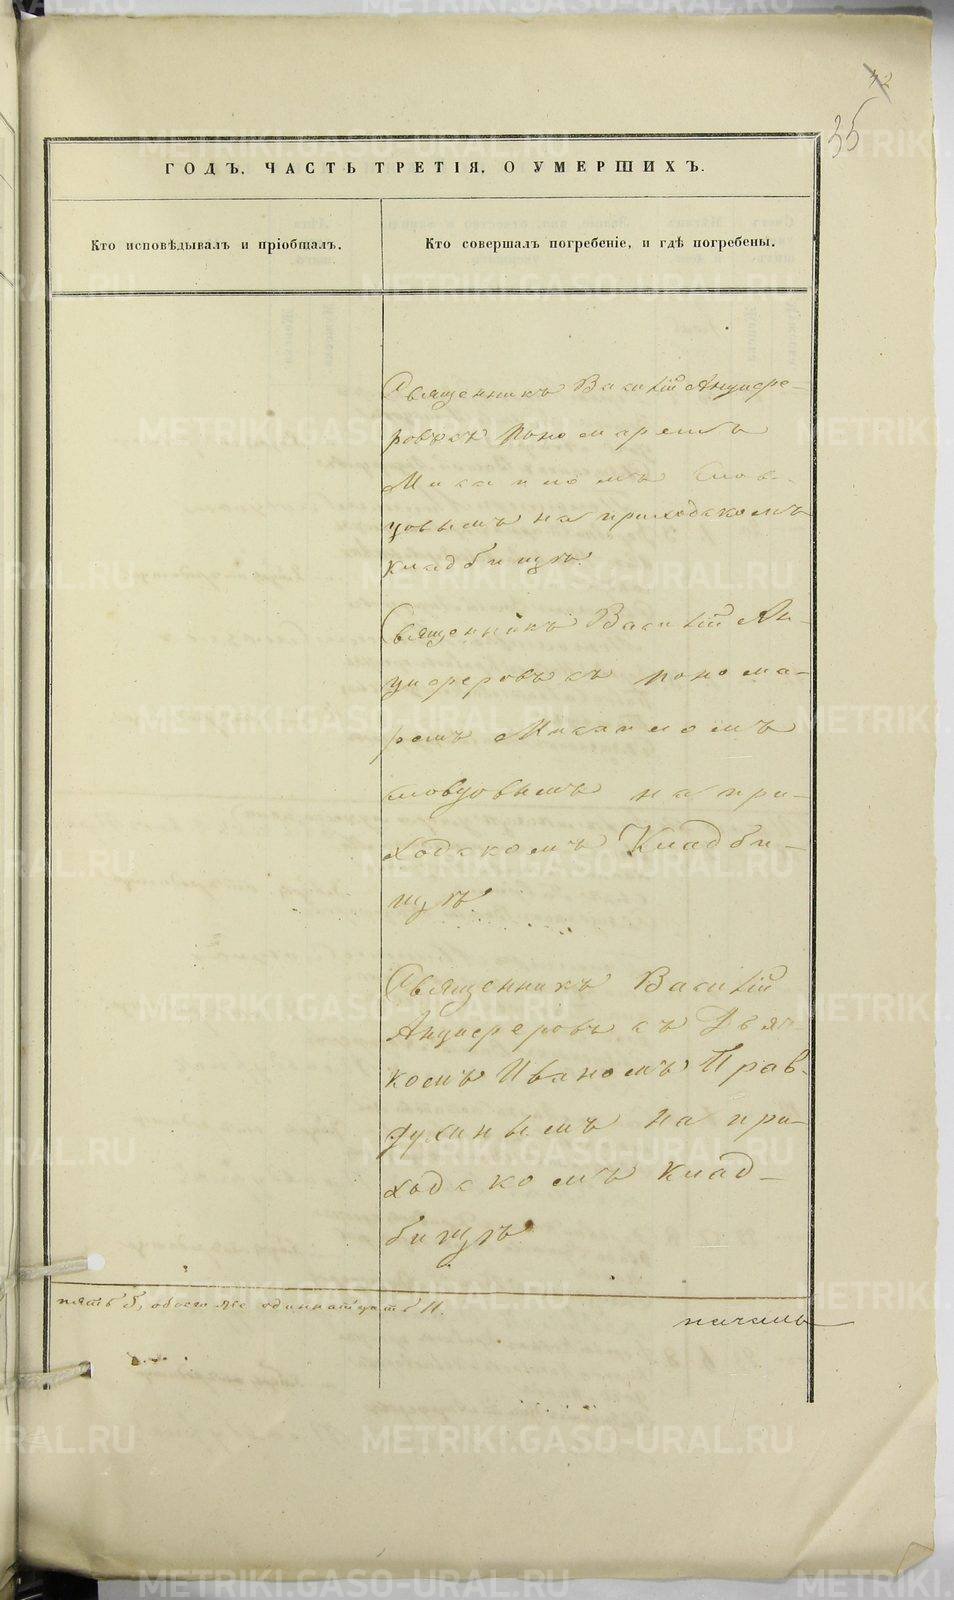 42
35
ГОДЪ. ЧАСТЬ ТРЕТІЯ. О УМЕРШИХЪ.
Кто исповѣдывалъ и пріобщалъ.
Кто совершалъ погребеніе, и гдѣ погребены.
Священникъ Василій Анцифе-
ровъ съ пономаремъ
Михаиломъ Слов-
цовымъ на приходскомъ
кладбищѣ.
Священникъ Василій Ан-
циферовъ съ понома-
ремъ Михаиломъ
Словцовымъ на при-
ходскомъ Кладби-
щѣ
Священникъ Василій
Анциферовъ съ Дья-
комъ Иваномъ Прав-
духинымъ на при-
ходскомъ клад-
бищѣ
пять 5, обоего же одиннатцать 11.
METRIKI.GASO-URAL.RU